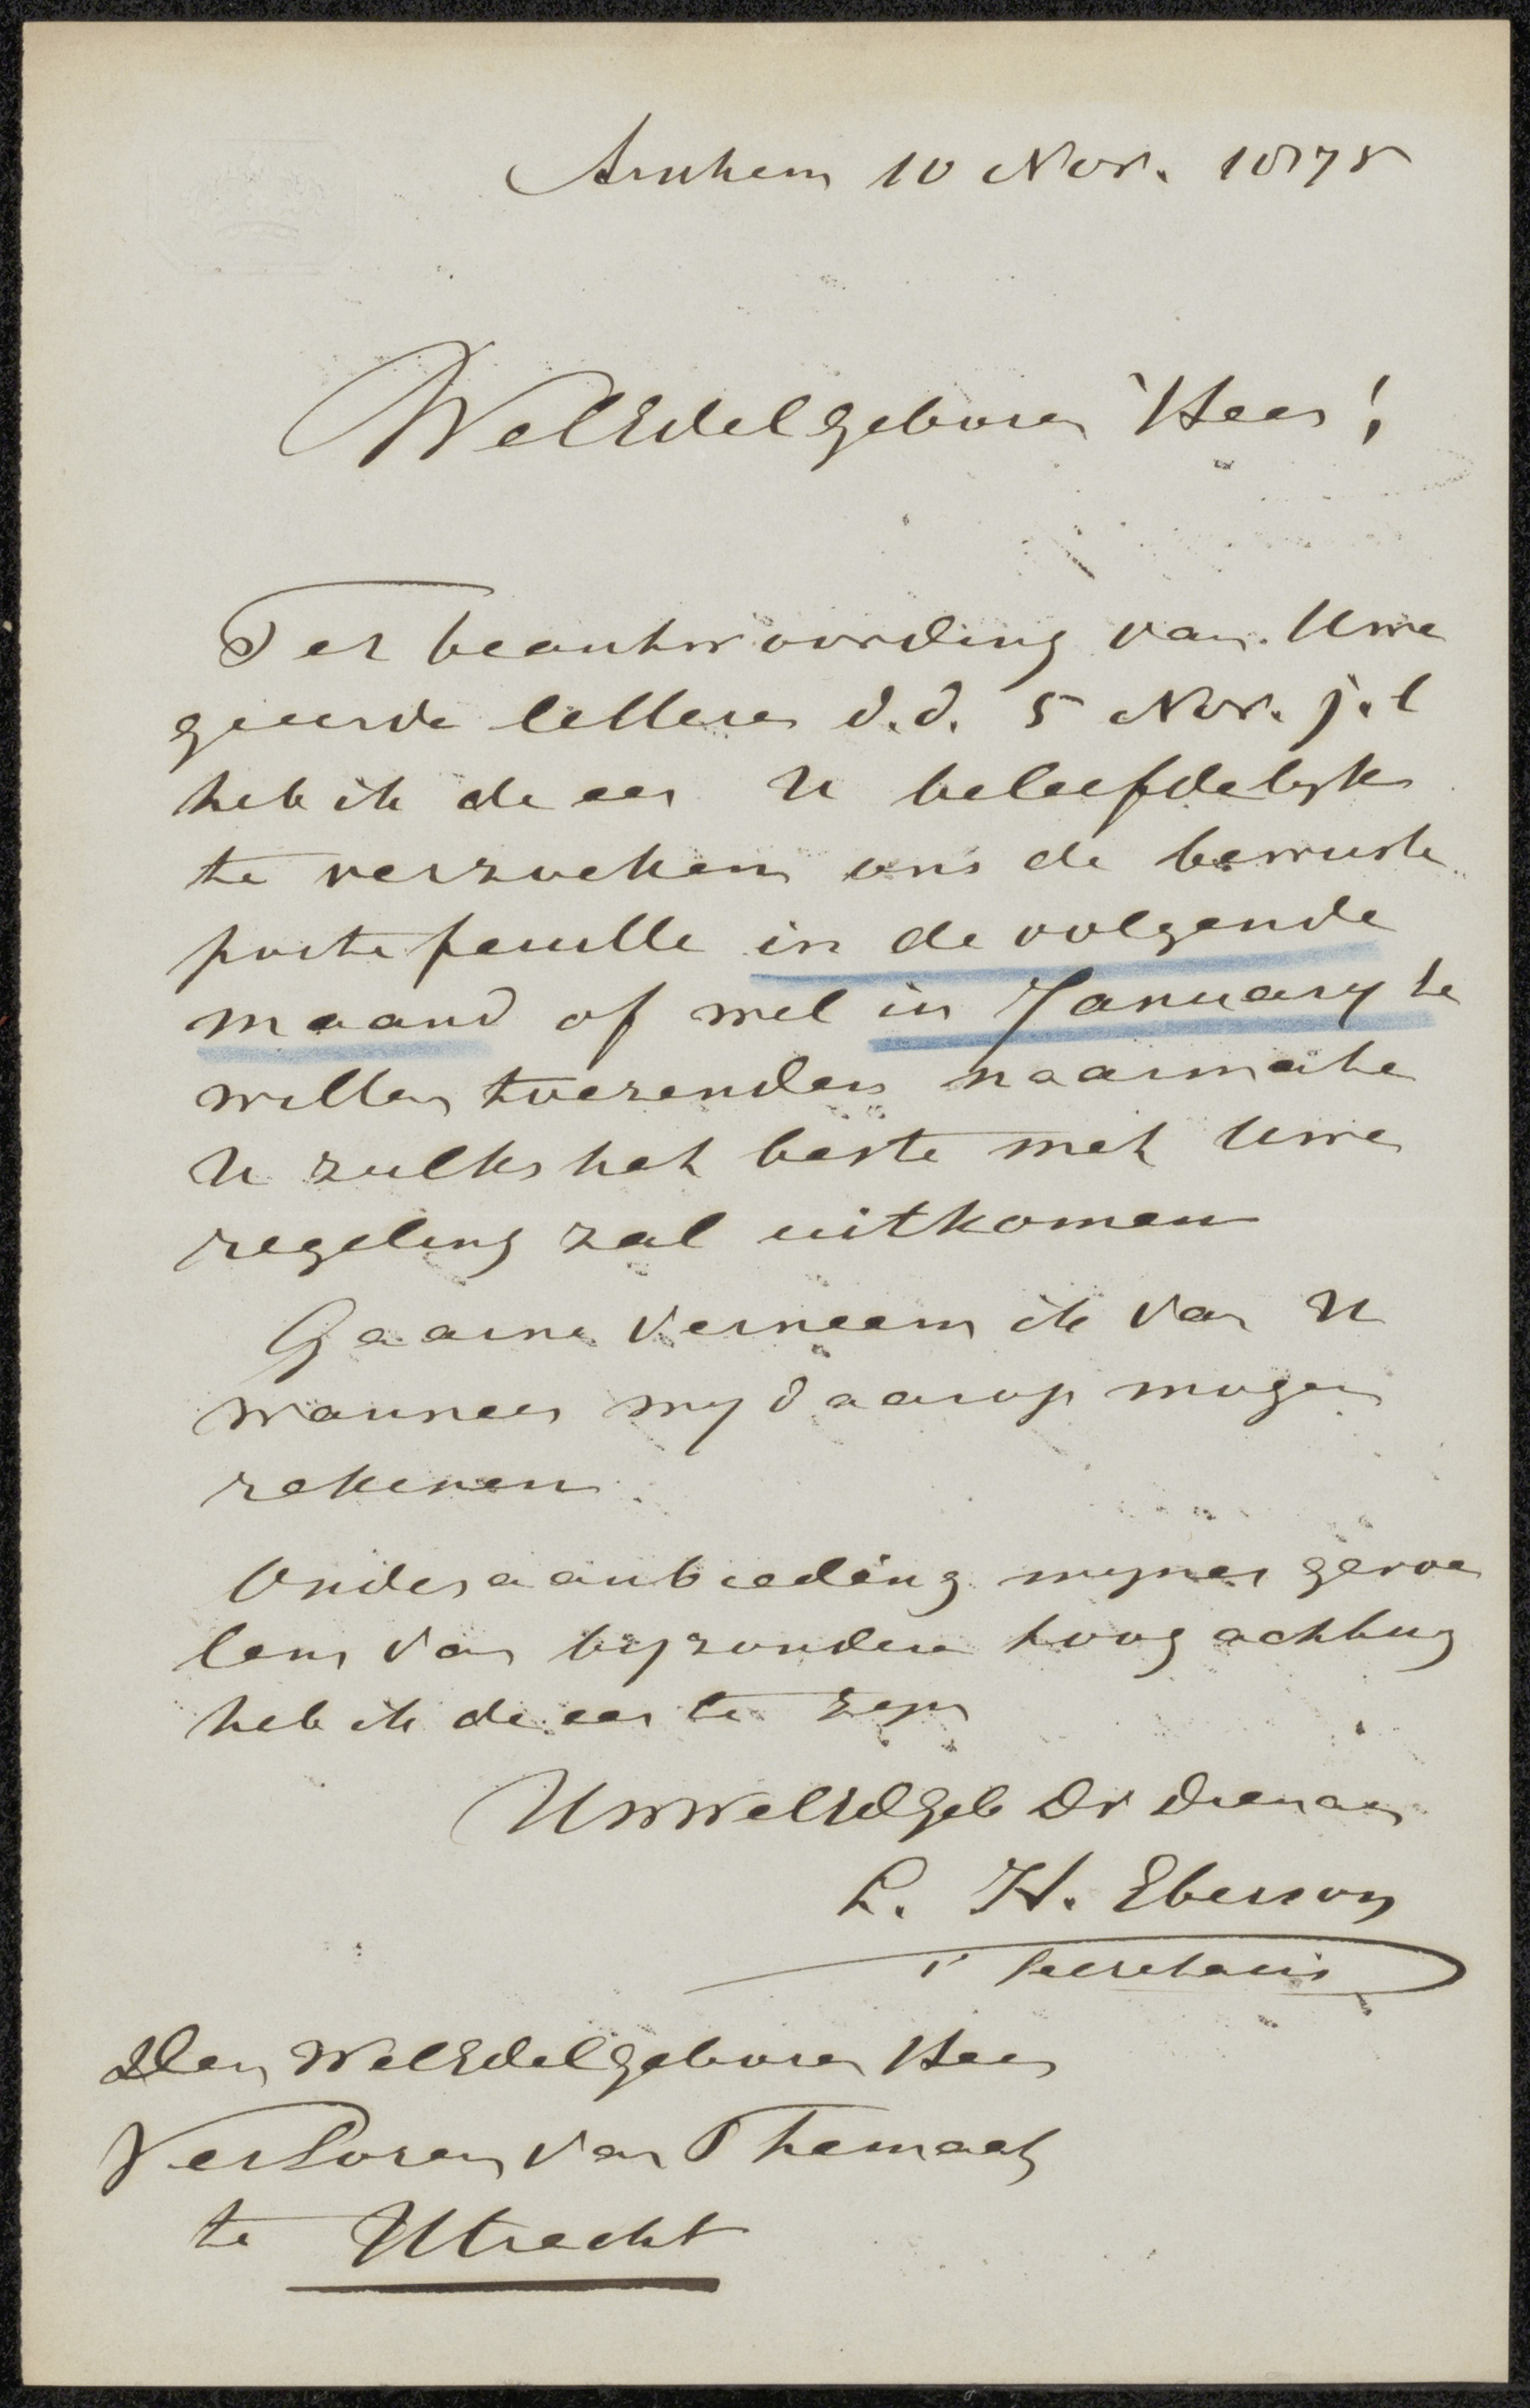 Arnhem 10 Nov. 1875
WelEdelgeboren Heer!
Ter beantwoording van Uwe
geeerde letteren d.d. 5 Nov. j.l
heb ik de eer U beleefdelyk
te verzoeken ons de bewuste
portefeuille in de volgende
maand of wel in January te
willen toezenden naarmate
U zulks het beste met Uwe
regeling zal uitkomen
Gaarne verneem ik van U
wanneer wy daarop mogen
rekenen
Onder aanbieding myner gevoe
lens van byzondere hoogachting
heb ik de eer te zyn
UwWelEdGeb Dv dienaar
L. H. Eberson
Secretaris
Den WelEdelgeboren Heer
VerLoren van Themaat
te Utrecht